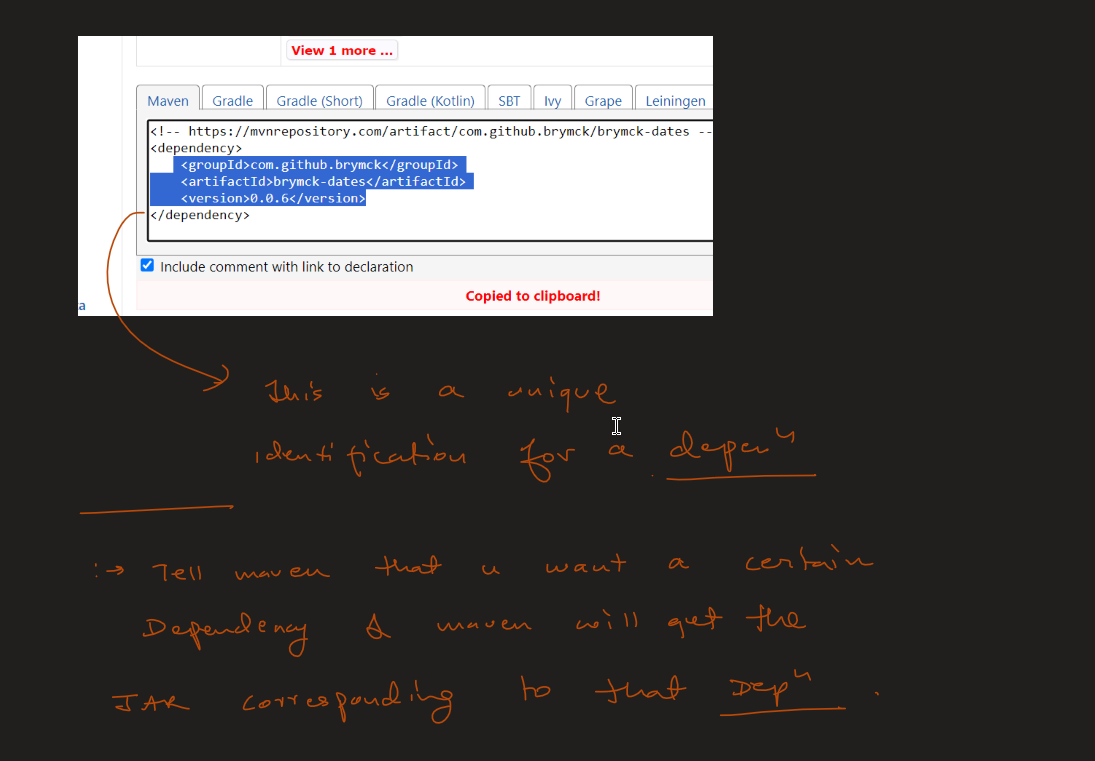 View 1 more ...
Maven Gradle Gradle (Short) Gradle (Kotlin) SBT Ivy Grape Leiningen
<!-- https://mvnrepository.com/artifact/com.github.brymck/brymck-dates --
<dependency>
<groupId>com.github.brymck</groupId>
<artifactId>brymck-dates</artifactId>
<version>0.0.6</version>
</dependency>
Include comment with link to declaration
Copied to clipboard!
a
This is a unique
identification for a depenʸ
:→ Tell maven that u want a certain
Dependency & maven will get the
JAR corresponding to that Depʸ .